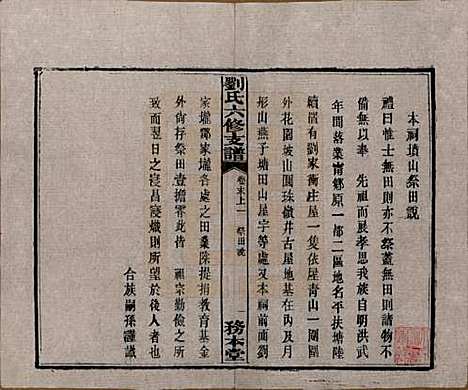 本祠墳山祭田説
禮曰惟士無田則亦不祭蓋無田則諸物不
備無以奉　先祖而展孝思我族自明洪武
年間落業甯鄉原一都二區地名平扶塘陸
續置有劉家衝庄屋一隻依屋青山一圍圍
外花園坡山園珠嶺井古屋地基在內又蟹
形山燕子塘田山屋宇等處又本祠前面劉
劉氏六修支譜
卷末上
祭田説
一
務本堂
家壪鄒家壪各處之田業除提捐教育基金
外尚存祭田壹擔零此皆　祖宗勤儉之所
致而翌日之寖昌寖熾則所望於後人者已
合族嗣孫謹識